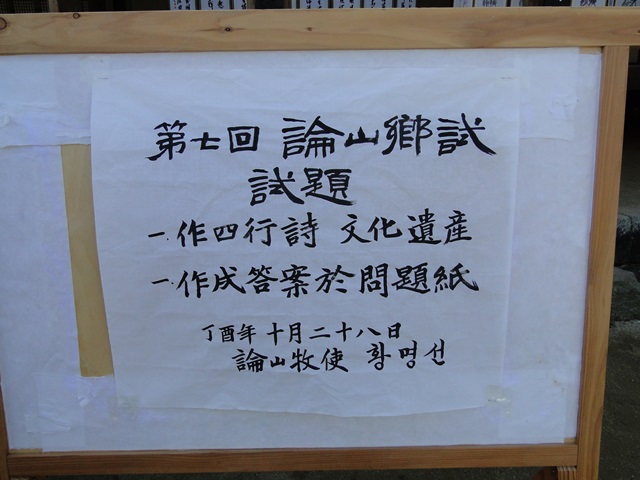 第七回 論山鄕試
試題
一. 作四行詩 文化遺産
一. 作成答案於問題紙
丁酉年 十月二十八日
論山牧使 황명선